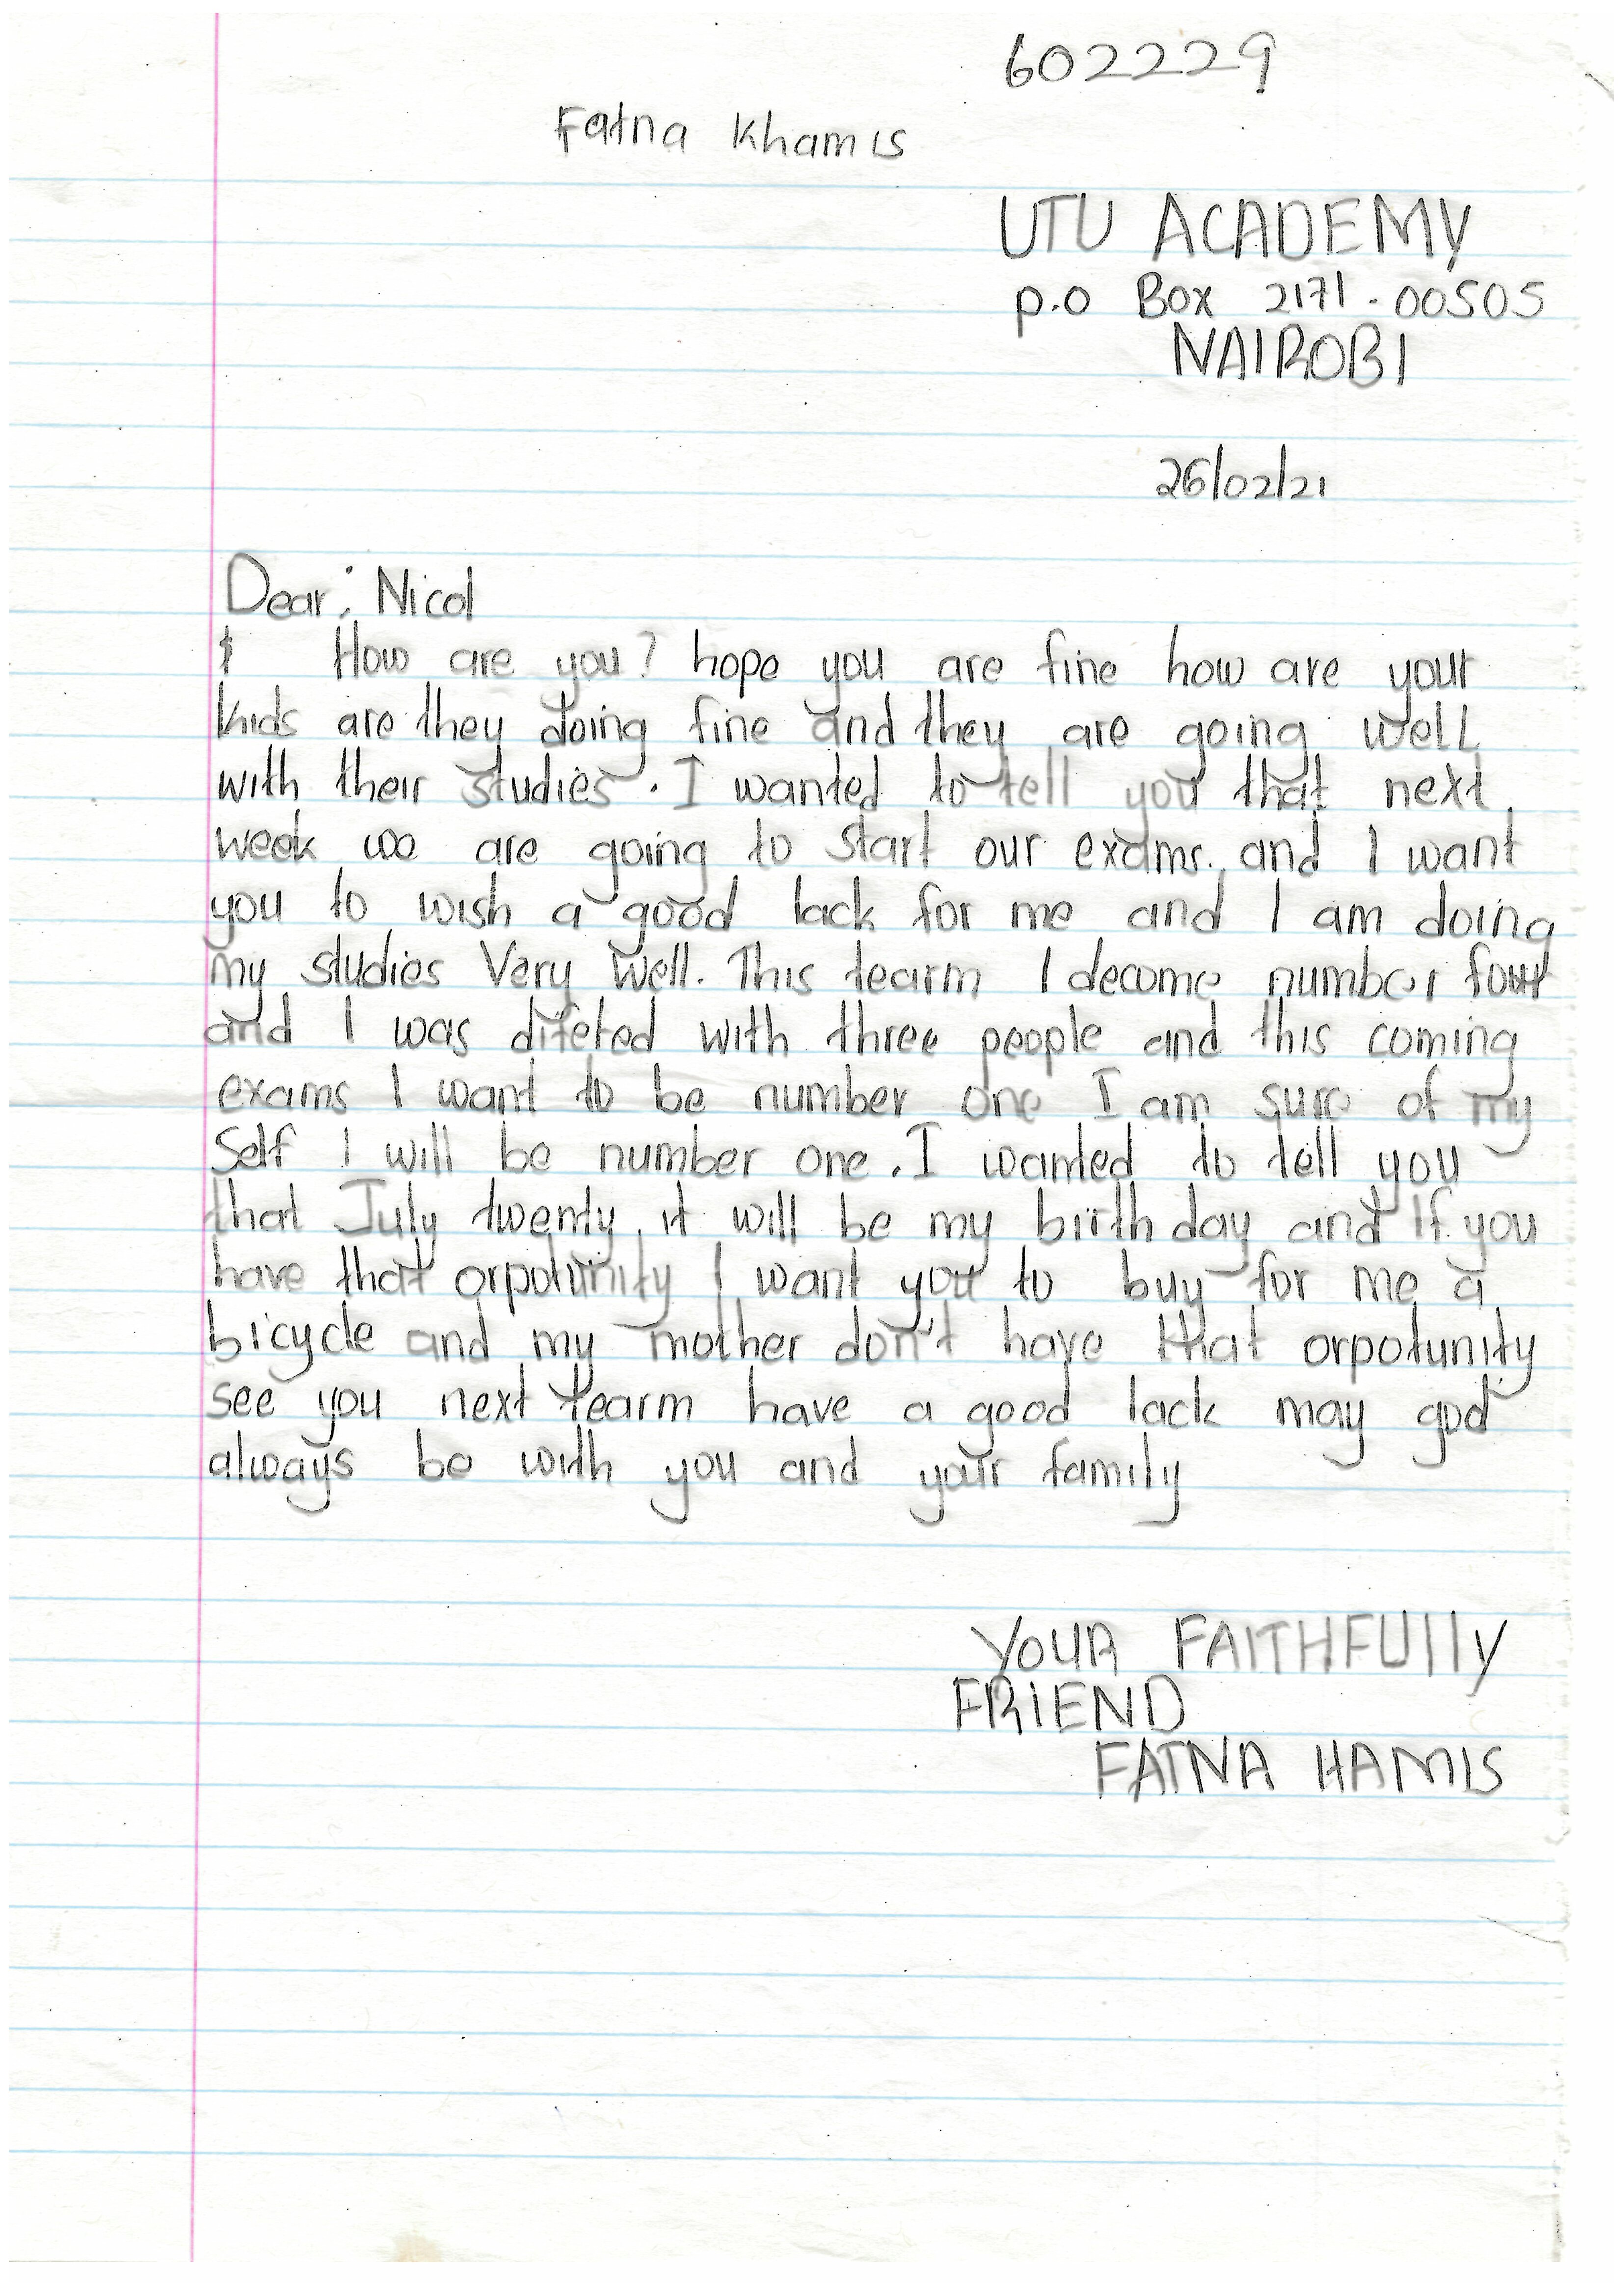 602229
Fatna Khamis
UTU ACADEMY
p.o Box 2171-00505
NAIROBI
26/02/21
Dear; Nicol
How are you? hope you are fine how are your
kids are they doing fine and they are going well
with their studies. I wanted to tell you that next
week we are going to start our exams. and I want
you to wish a good lack for me and I am doing
my studies Very Well. This tearm I decome number four
and I was difeted with three people and this coming
exams I want to be number one I am sure of my
Self I will be number one. I wanted to tell you
that July twenty, it will be my birth day and If you
have that orpotunity I want you to buy for me a
bicycle and my mother don't have that orpotunity
see you next tearm have a good lack may god
always be with you and your family
YOUR FAITHFUlly
FRIEND
FATNA HAMIS